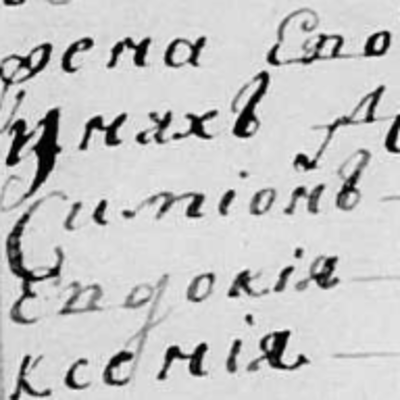 жена Ево
У нихъ
Симіонъ
Евдокія
ксенія